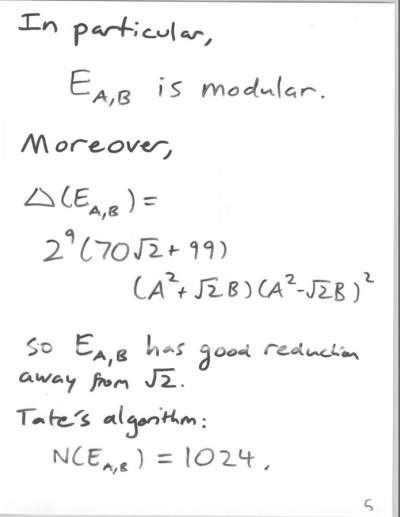 In particular,
E_{A,B} is modular.
Moreover,
Δ(E_{A,B}) =
2^9(70√2 + 99)
(A^2 + √2B)(A^2 - √2B)^2
so E_{A,B} has good reduction
away from √2.
Tate's algorithm:
N(E_{A,B}) = 1024.
5